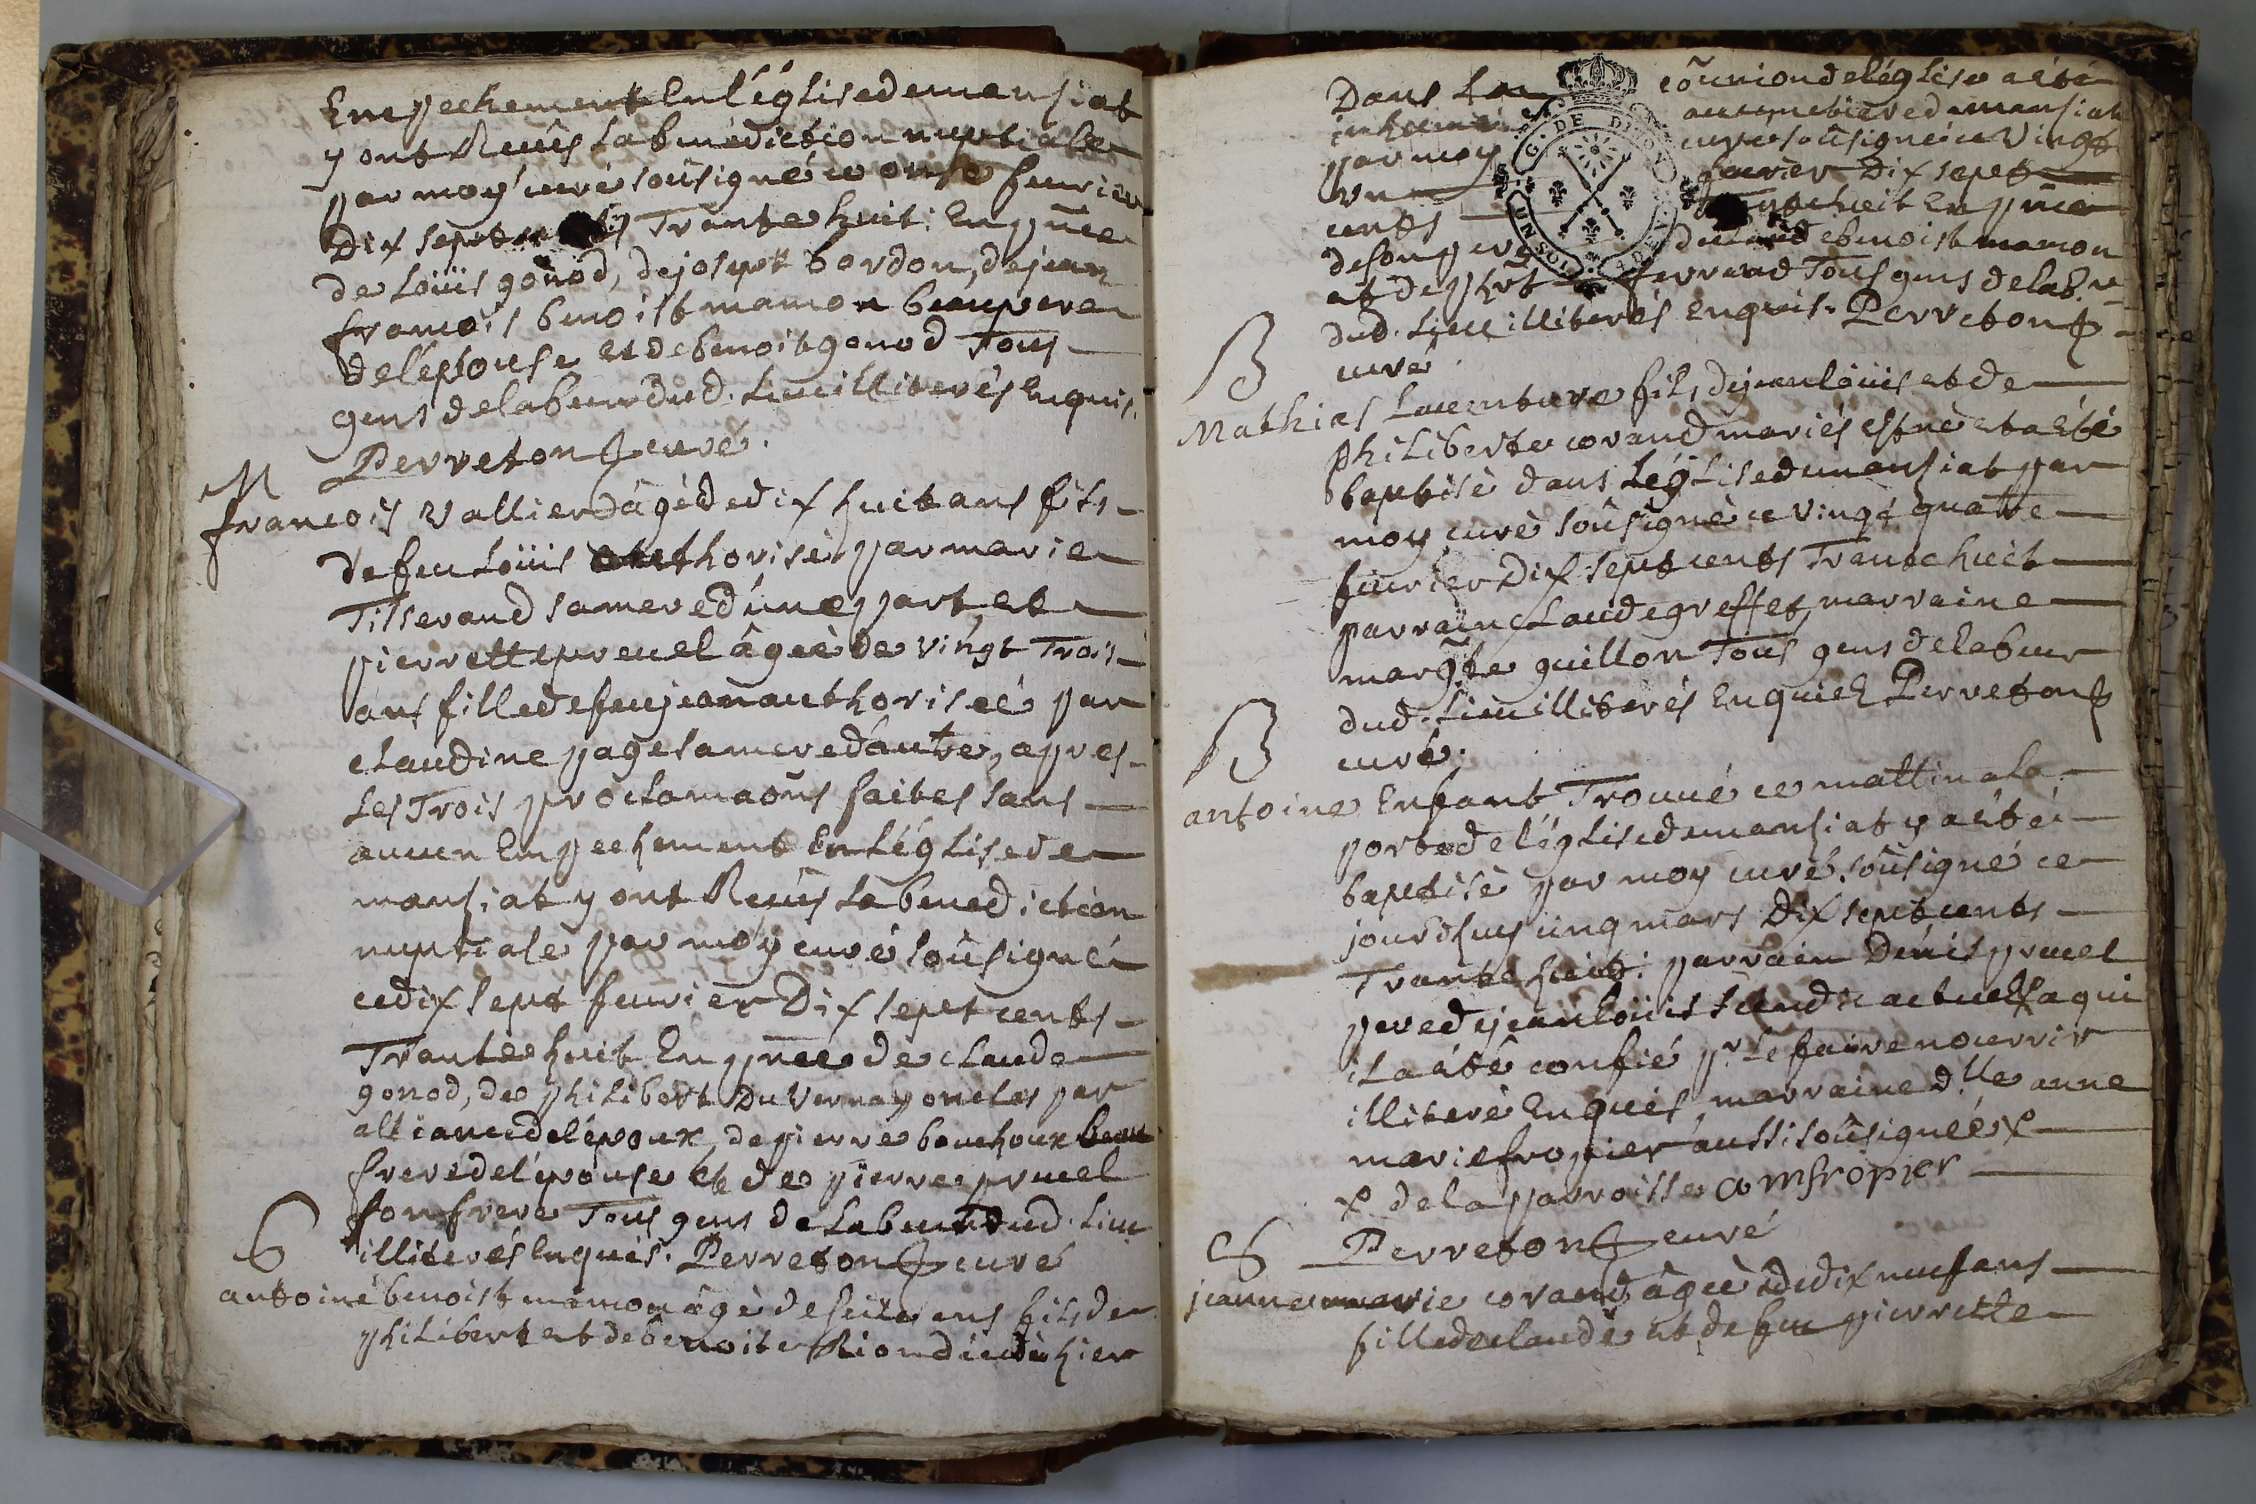 Empechement En l'église de mansiat
y ont Recüs la benédiction nuptiale
par moy curé soûsigné ce onse feuvrier
Dix sept Trante huit: En pñce
de Loüis gonod, de joseph bordon, de jean
francois benoist mamon beaupere
de l'épouse et de benoit gonod Tous
gens de labeur dud. Lieu illiterés Enquis.
Perreton curé.
M
francois Vallier âgé de dix huit ans fils
de feu Loüis authorisé par marie
Tisserand sa mere d'une part, et
pierrette pruel âgée de vingt Trois
ans fille de feu jean authorisée par
claudine page sa mere d'autre, apres
les Trois proclamaoñs faites sans
aucun Empechement En l'église de
mansiat y ont Recüs la benediction
nuptiale par moy curé soûsigné
ce dix sept feuvrier Dix sept cents
Trante huit En pñce de claude
gonod, de philibert Du Vernay oncles par
alliance de l'époux, de pierre bouchoux beau
frere de l'épouse et de pierre pruel
son frere Tous gens de labeur dud. Lieu
illiterés Enquis. Perreton curé
S
antoine benoist mamon âgé de seize ans fils de
philibert et de benoite hier
Dans la coũnion de l'église a été
inhumé au cimetiere de mansiat
par moy curé soûsigné ce Vingt
un feuvrier Dix sept
cents Trante huit En pñce
de son pere dud. de benoist mamon
et de ferrand Tous gens de lab.r
dud. Lieu illiterés Enquis. Perreton
curé
B
Mathies Laventure fils de jean loüis et de
philiberte corand mariés est né et a été
baptisé dans l'église de mansiat par
moy curé soûsigné ce vingt quatre
feuvrier Dix sept cents Trante huit
parrain claude greffet, marraine
margte guillon Tous gens de labeur
dud. Lieu illiterés Enquis Perreton
curé.
B
antoine Enfant Trouvé ce mattin a la
porte de l'église de mansiat y a été
baptisé par moy curé soûsigné ce
jourdhuy cinq mars Dix sept cents
Trante huit: parrain Denis pruel
pere de jean loüis scindic actuel a qui
il a été confié pr le faire nourrir
illiteré Enquis, marraine dlle anne
marie fropier aussi soûsignée x
x de la parroisse amfropier
Perreton curé
S
jeanne marie corand âgée de dix neuf ans
fille de claude et de feu pierrette